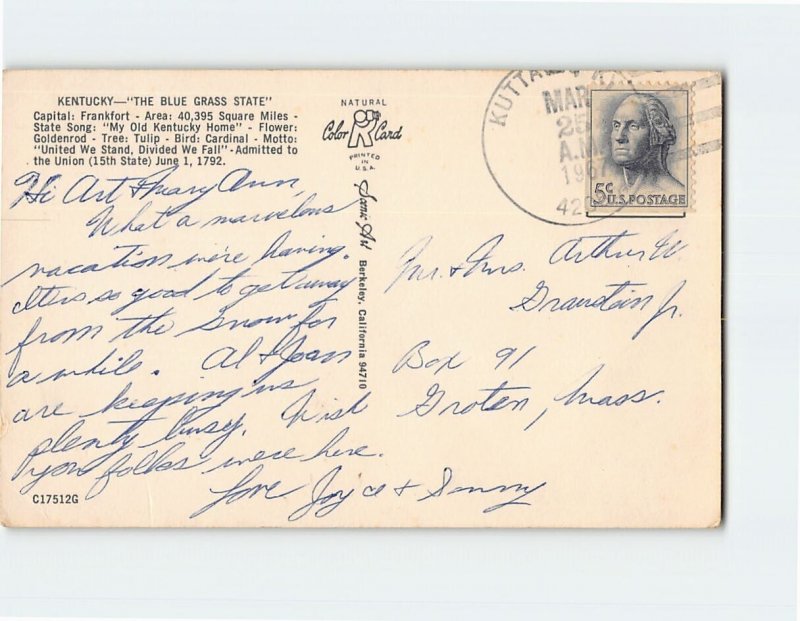 KENTUCKY—"THE BLUE GRASS STATE"
Capital: Frankfort - Area: 40,395 Square Miles -
State Song: "My Old Kentucky Home" - Flower:
Goldenrod - Tree: Tulip - Bird: Cardinal - Motto:
"United We Stand, Divided We Fall" - Admitted to
the Union (15th State) June 1, 1792.
Hi Art & Mary Ann,
What a marvelous
vacation we're having.
It's so good to get away
from the snow for
a while. Al & Joan
are keeping us
plenty busy. Wish
you folks were here.
Love Joyce & Sonny
C17512G
NATURAL
Color Card
PRINTED
IN
U.S.A.
Scenic Art Berkeley, California 94710
KUTTAWA
MAR
25
A.M.
1967
5¢ U.S. POSTAGE
Mr. & Mrs. Arthur W.
Jr.
Box 91
Groton, Mass.